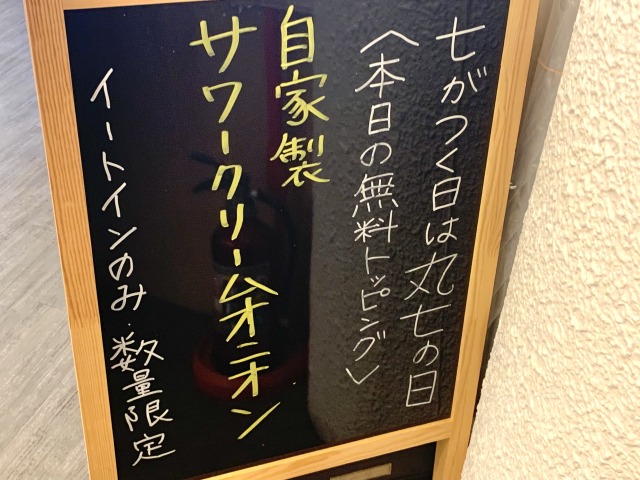 七がつく日は丸七の日
〈本日の無料トッピング〉
自家製
サワークリームオニオン
イートインのみ・数量限定